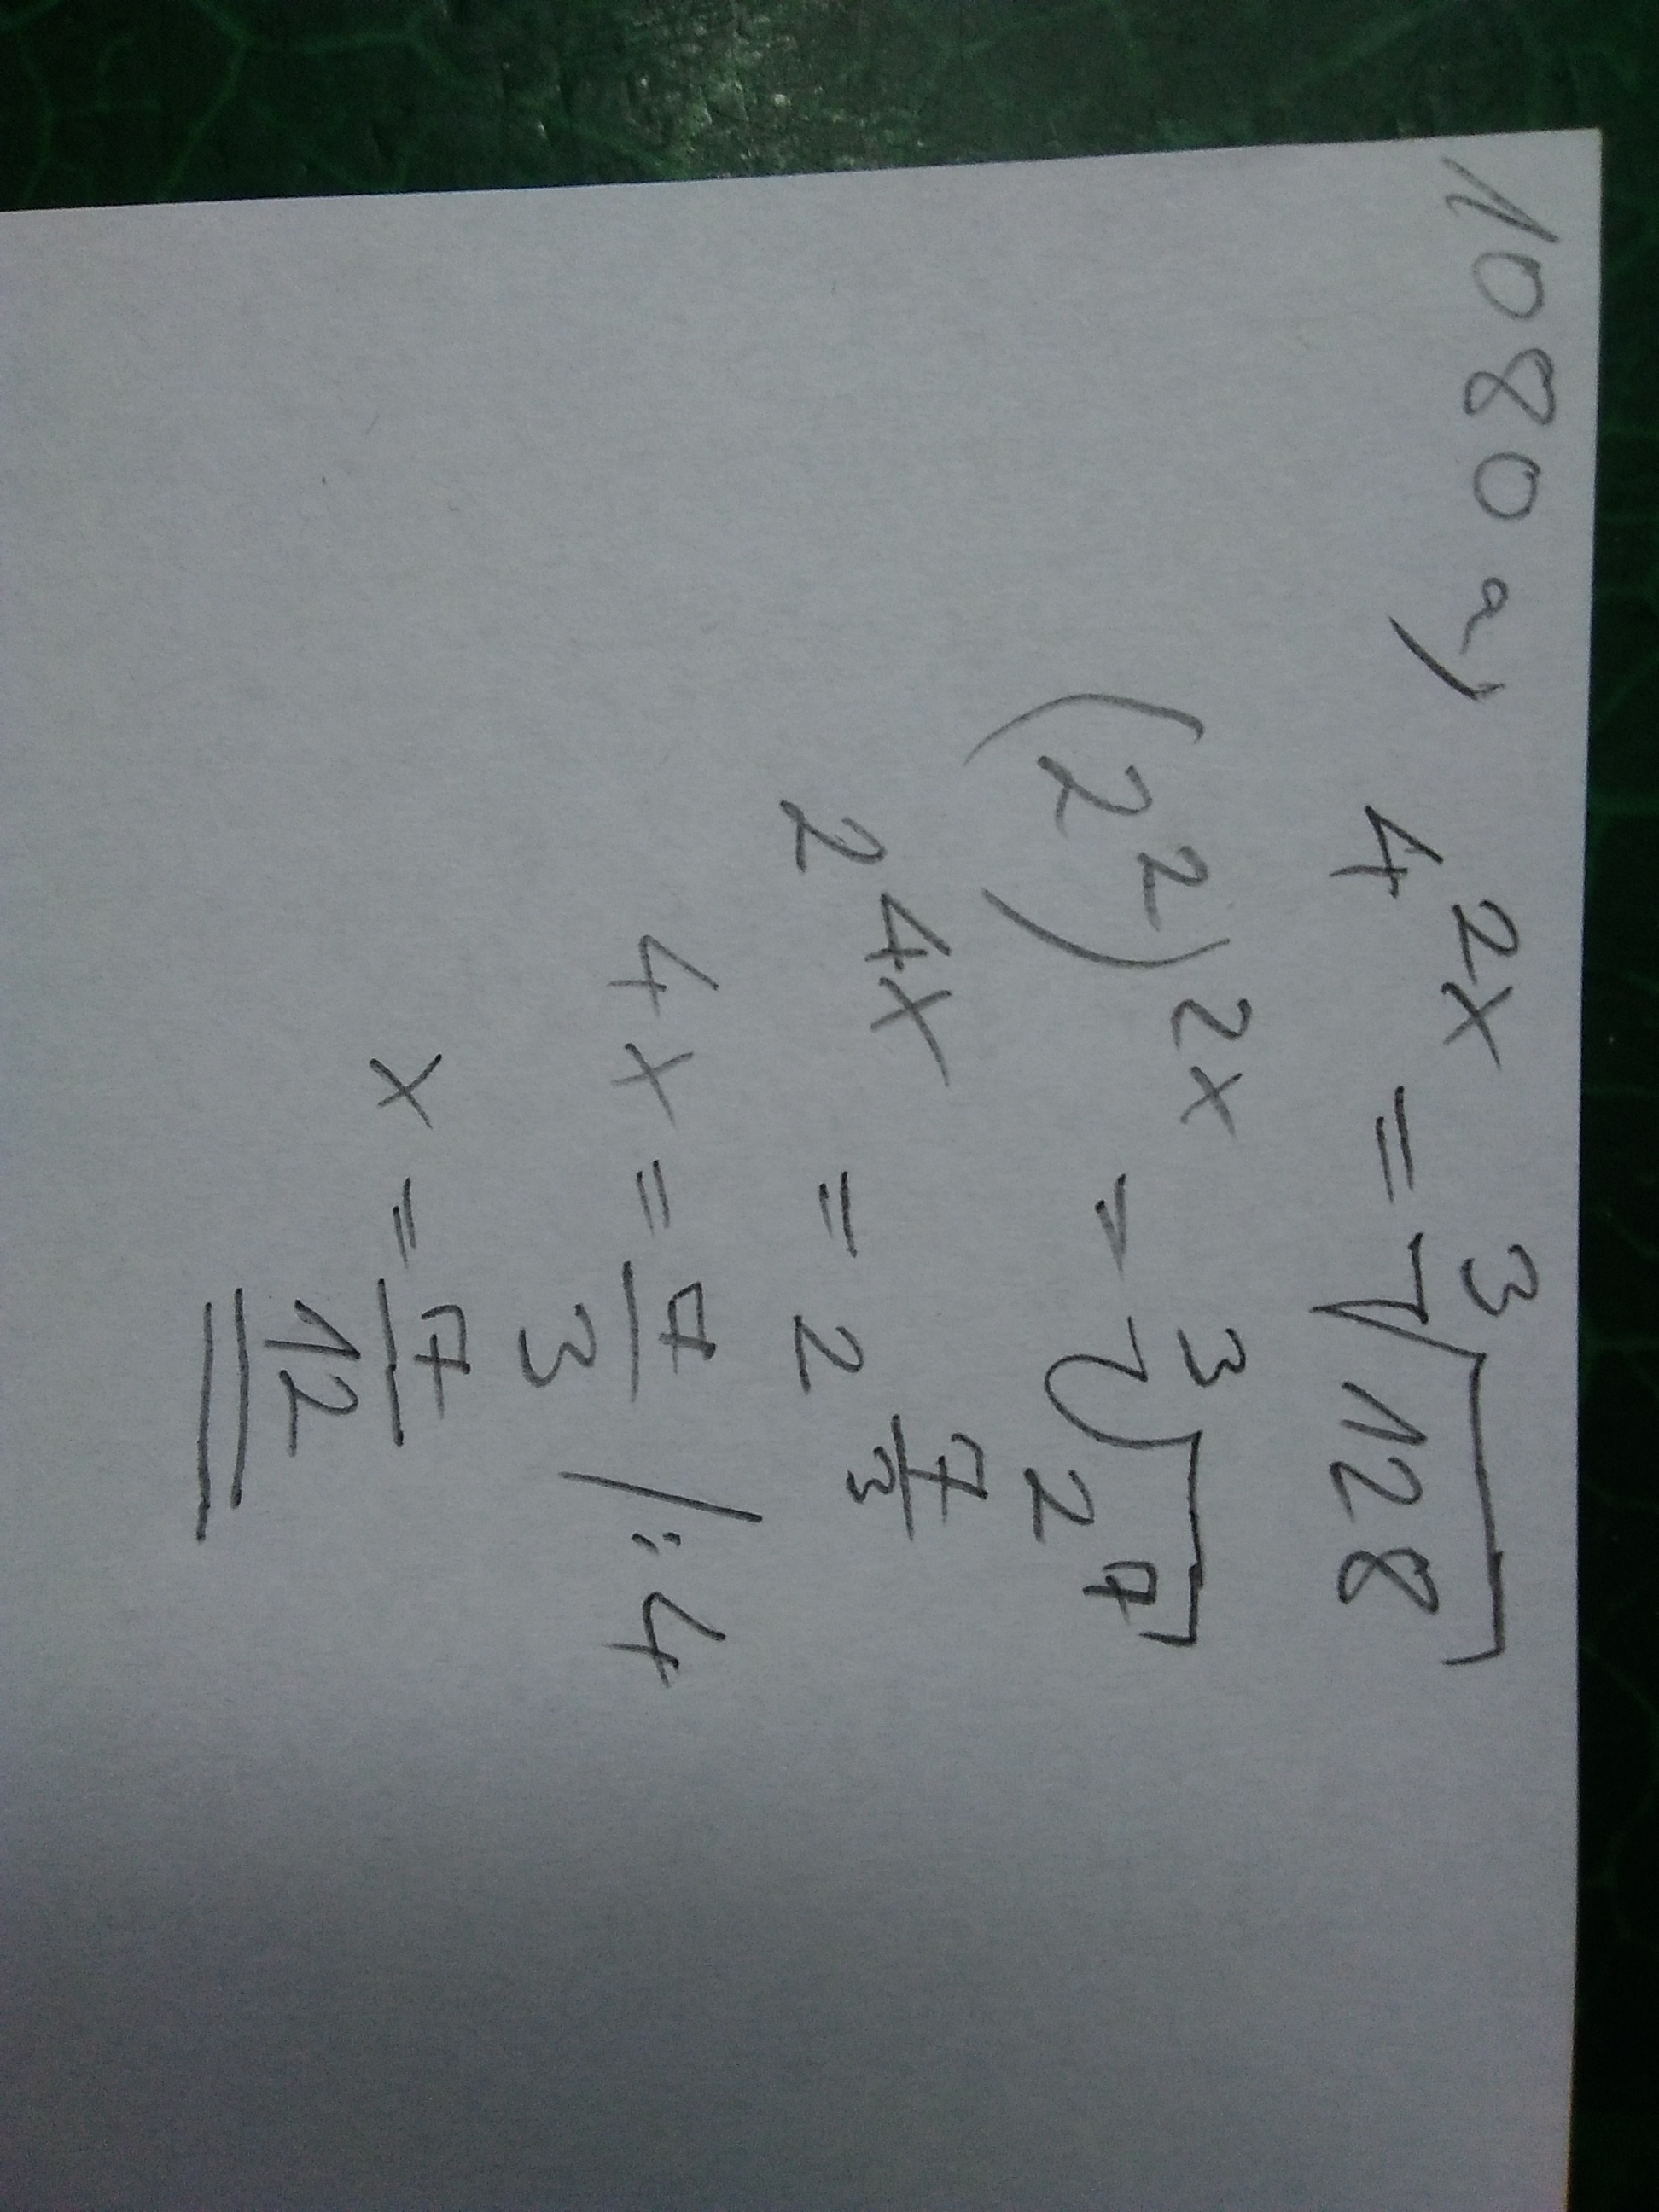 1080 a) 4^{2x} = \sqrt[3]{128}
(2^2)^{2x} = \sqrt[3]{2^7}
2^{4x} = 2^{\frac{7}{3}}
4x = \frac{7}{3} /:4
x = \frac{7}{12}